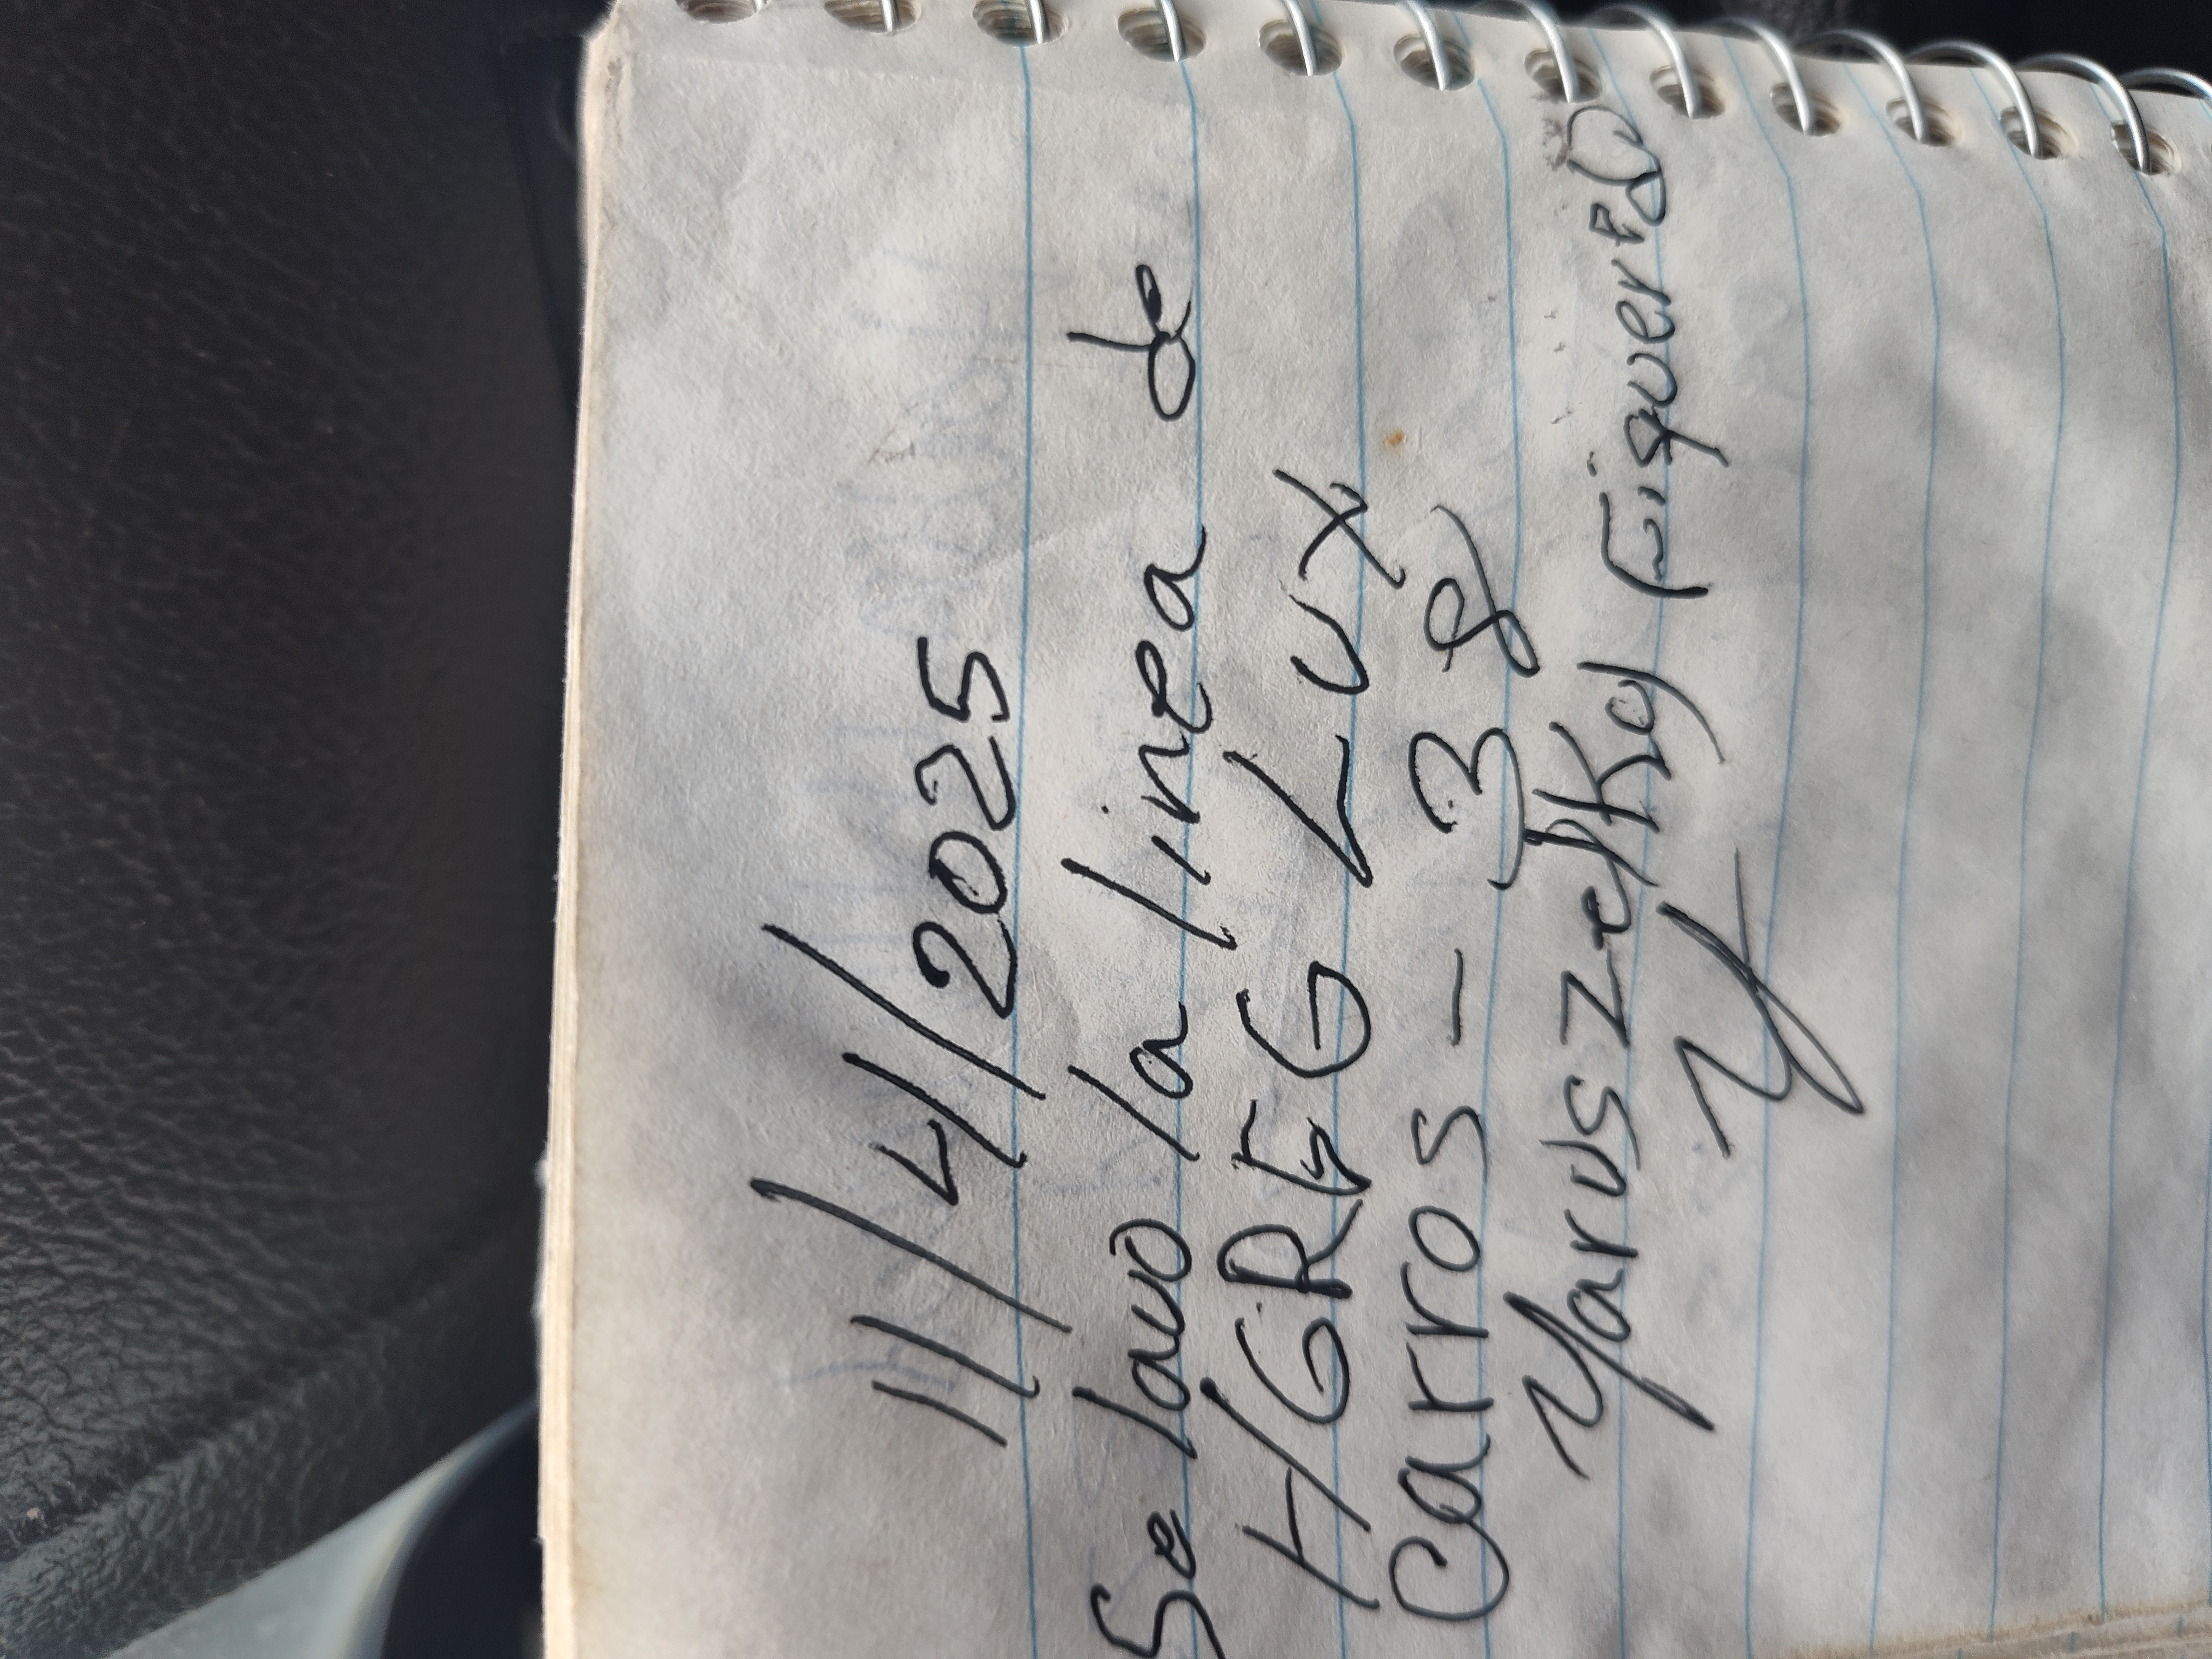 11/4/2025
Se lavo la linea de
HGREG LUX
Carros - 38
Yaruszelky Figueredo